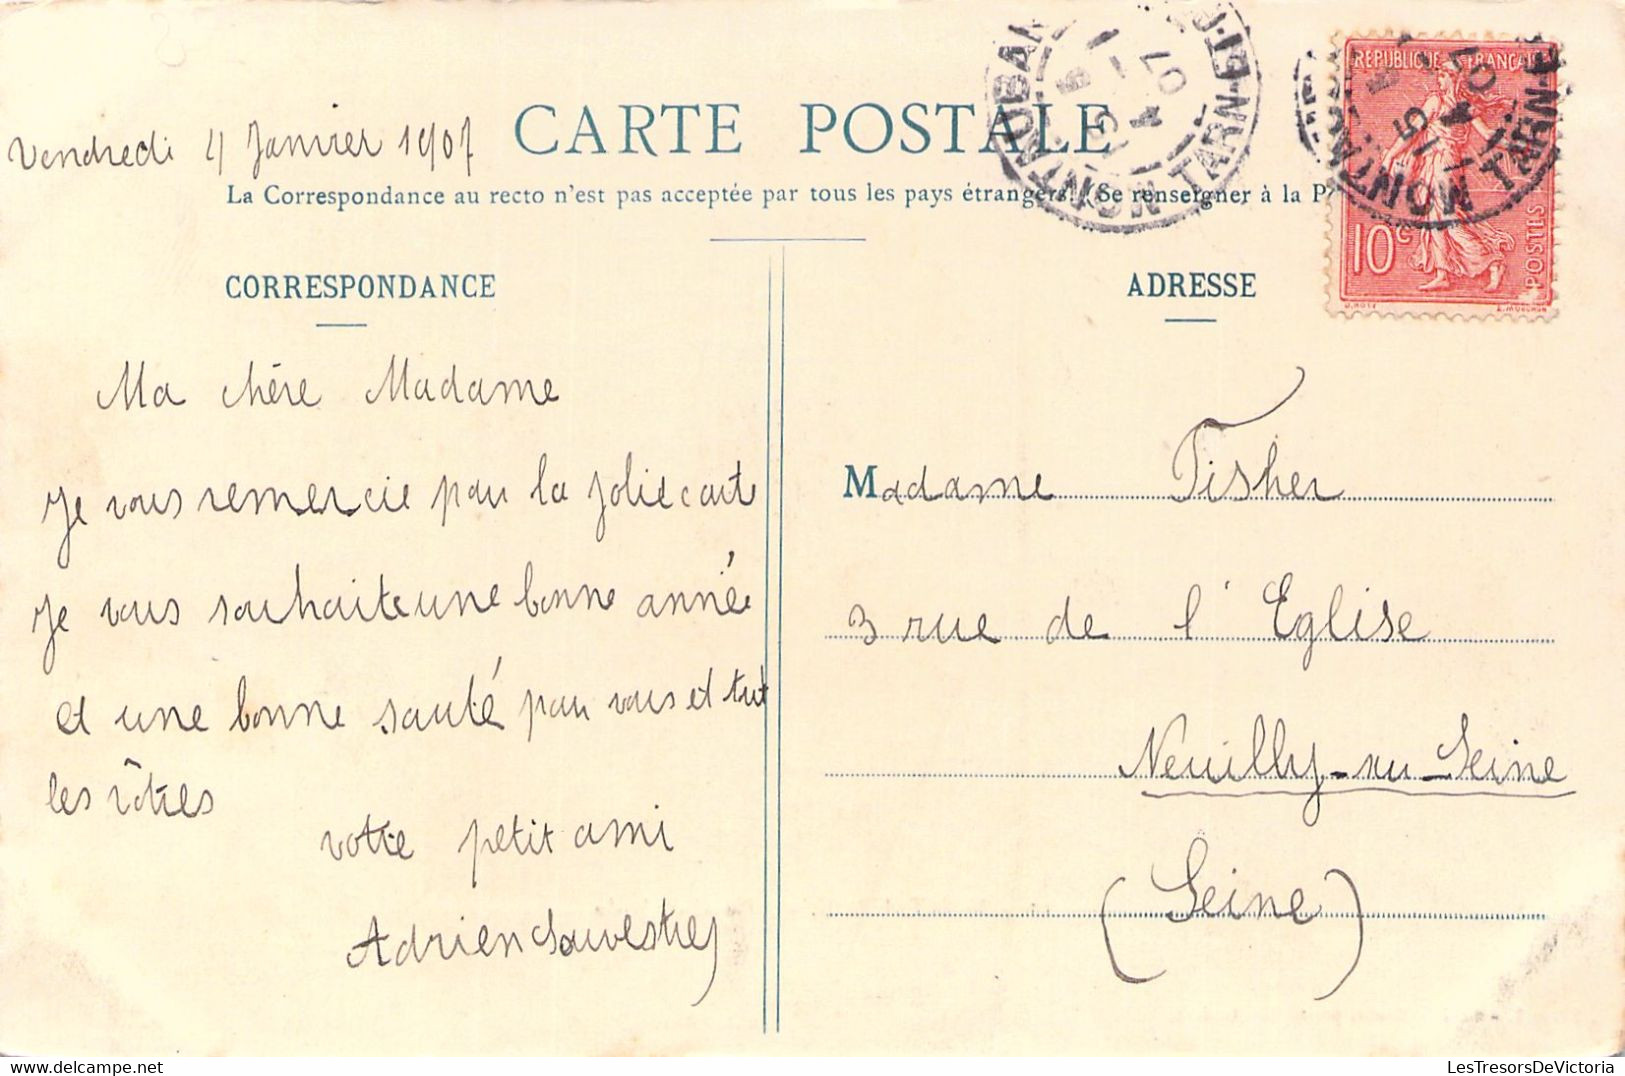 Vendredi 4 Janvier 1907
CARTE POSTALE
La Correspondance au recto n'est pas acceptée par tous les pays étrangers (Se renseigner à la P
MONTAUBAN TARN-ET-
15 4
1 07
RÉPUBLIQUE FRANÇAISE
10c
POSTES
MONTAUBAN TARN-
CORRESPONDANCE
Ma chère Madame
Je vous remercie pour la jolie carte
Je vous souhaite une bonne année
et une bonne santé pour vous et tout
les vôtres
votre petit ami
Adrien Sauvestres
ADRESSE
Madame Fisher
3 rue de l'Eglise
Neuilly-sur-Seine
(Seine)
LesTresorsDeVictoria